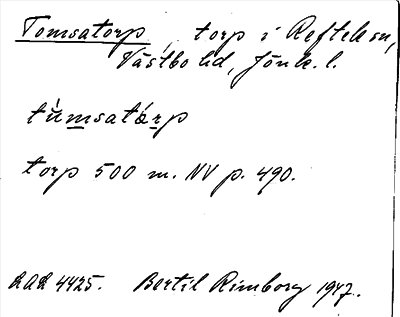 Tomsatorp torp i Reftele sn,
Västbo hd, Jönk. l.
tùmsatårp
torp 500 m. NV p. 490.
RAÄ 4425. Bertil Rimborg 1947.